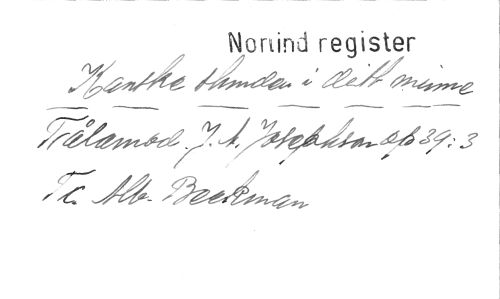 Norlind register
Kanske stunden i ditt minne
Tålamod. J. A. Josephson op 39:3
Tr. Alb. Beekman